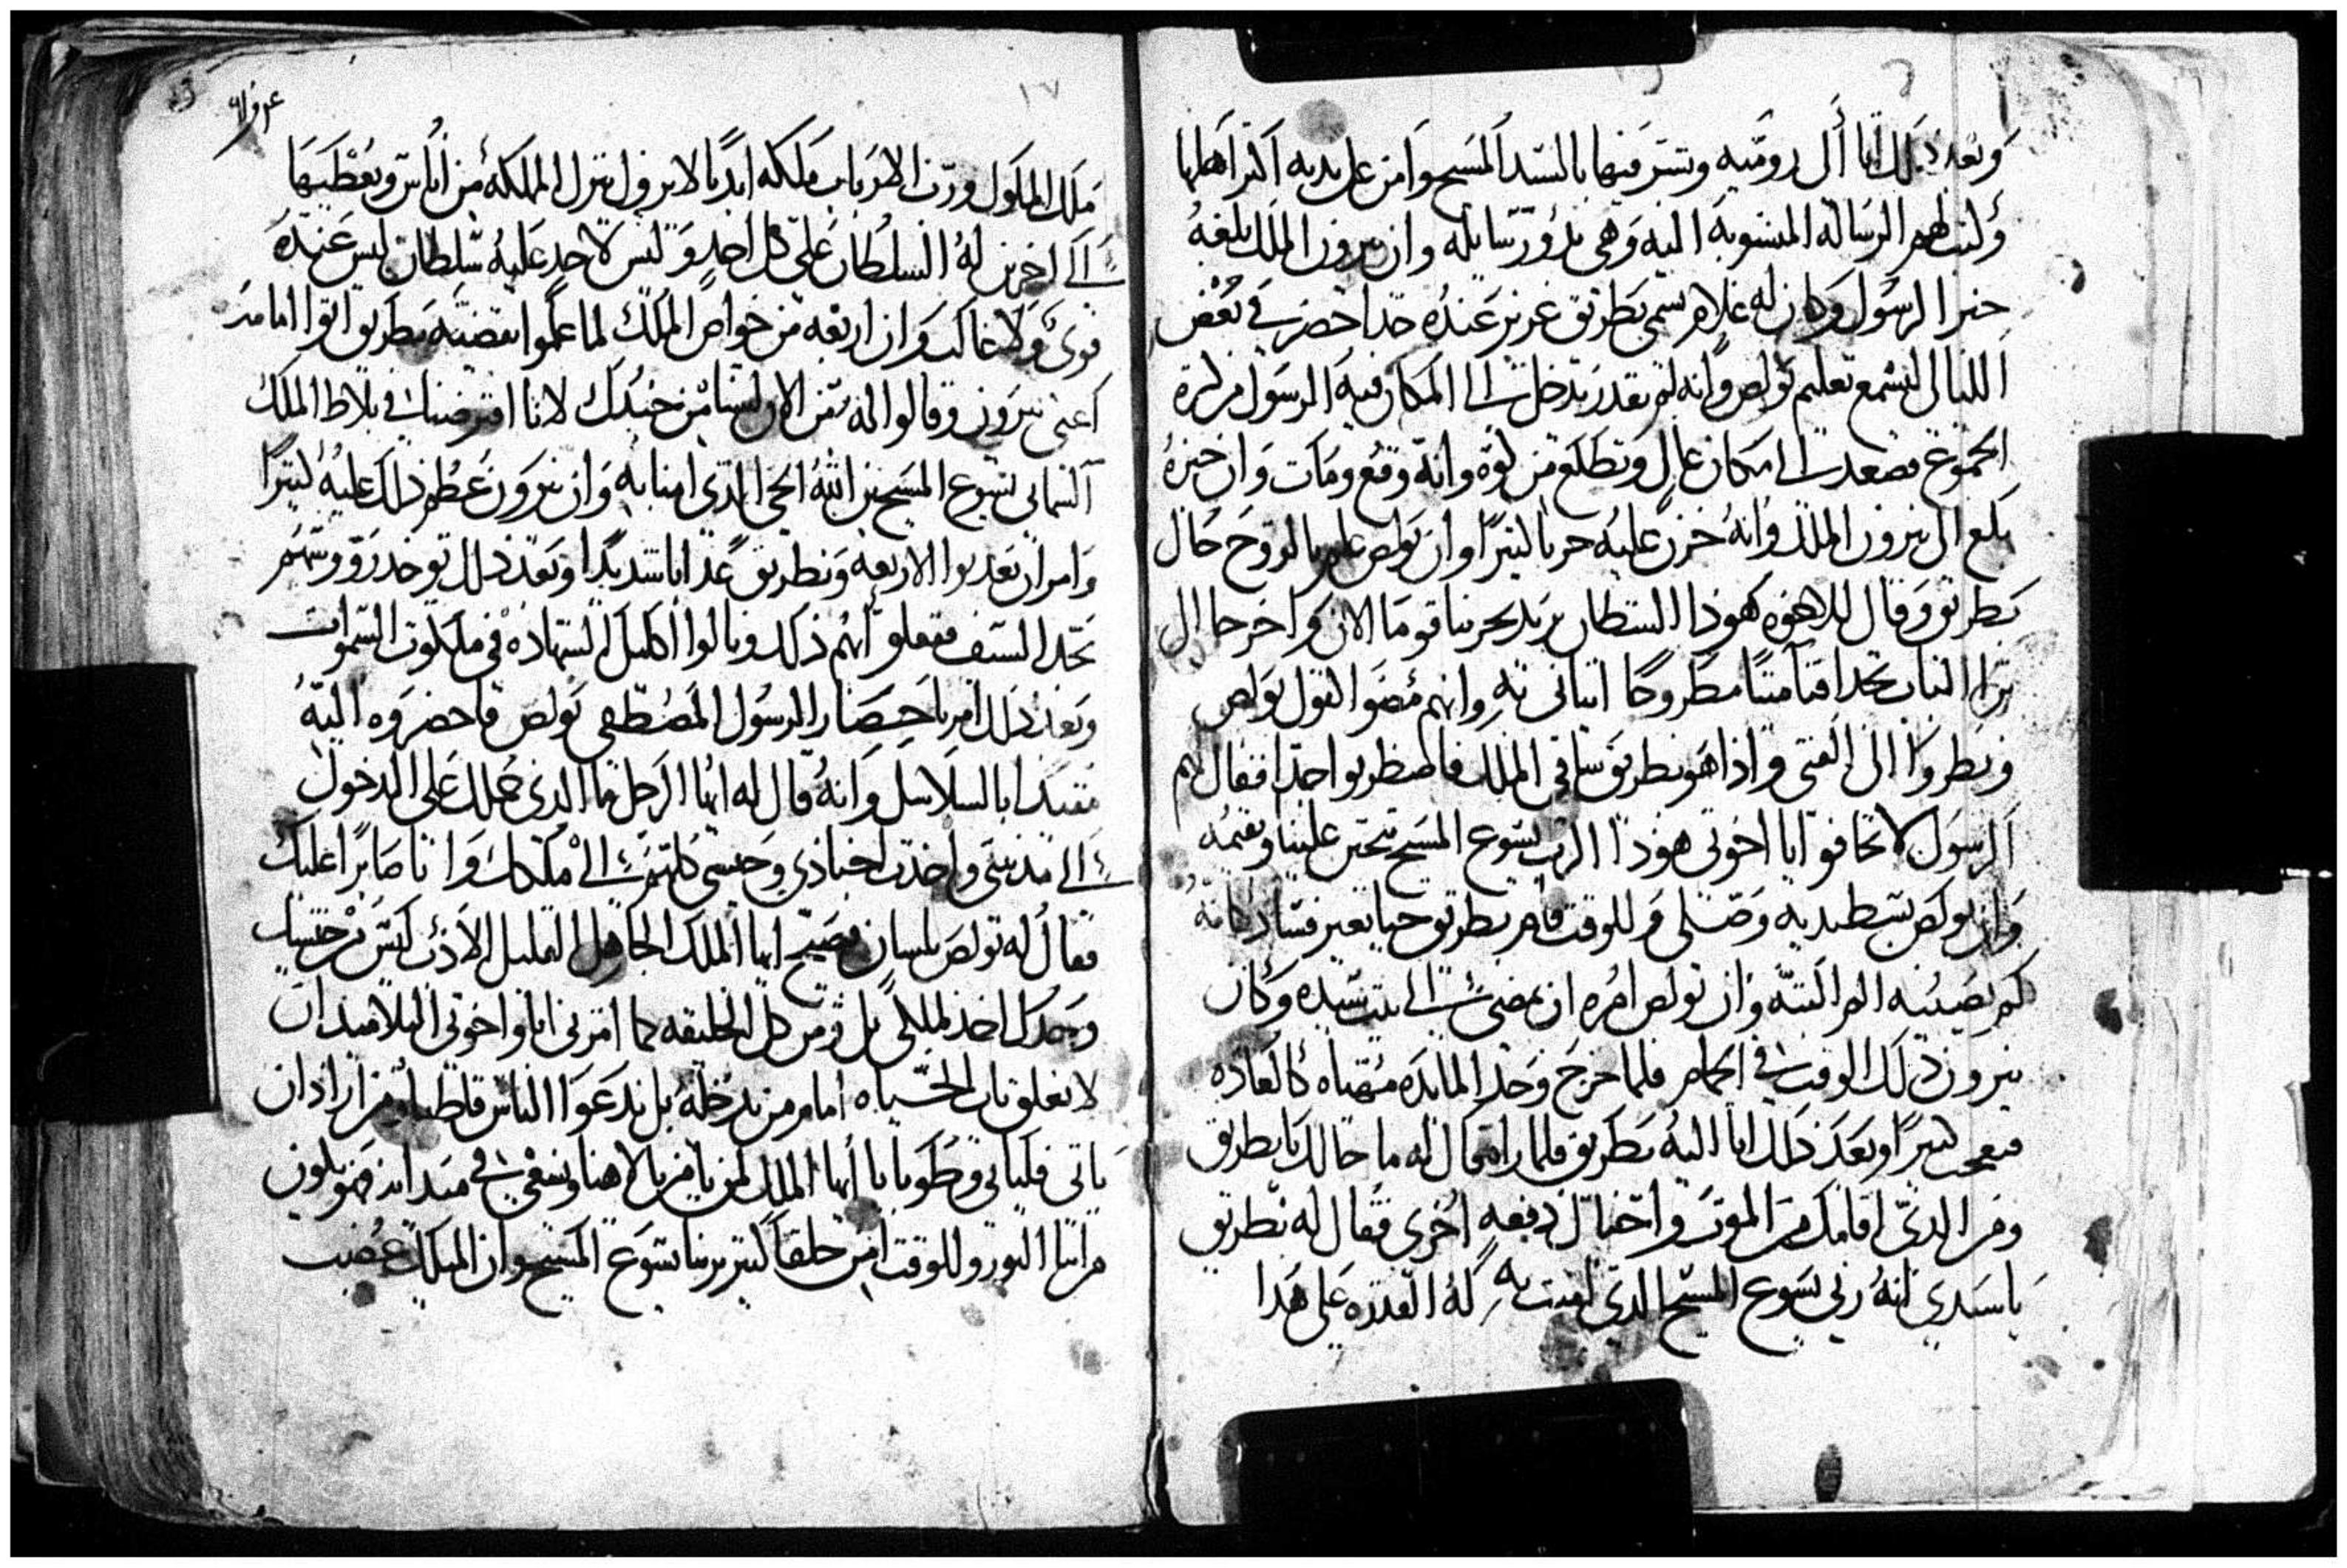 وبعد ذلك اتا الى روميه وبشر فيها بالسيد المسيح وامن على يديه اكثر اهلها
وكتب لهم الرساله المنسوبه اليه وهى بدؤ رسايله وان نيرون الملك بلغه
خبر الرسول وكان له غلام يسمى بطريق عزيز عنده جدا حضر في بعض
الليالى ليسمع تعليم بولص وانه لم يقدر يدخل الى المكان فيه الرسول من كثرة
الجموع فصعد الى مكان عال وتطلع من كوه وانه وقع ومات وان خبره
بلغ الى نيرون الملك وانه حزن عليه حزنا كثيرا وان بولص علم بالروح حال
بطريق وقال للاخوه هوذا الشيطان يريد يجربنا قوما الان واخرجا الى
برا الباب تجدا فتا ميتا مطروحا اتيانى به وانهم مضوا لقول بولص
ونظروا الى الفتى واذا هو بطريق ساقى الملك فاضطربوا جدا فقال لهم
الرسول لا تخافوا يا اخوتى هوذا الرب يسوع المسيح يتحنن علينا ويقيمه
وان بولص بسط يديه وصلى وللوقت قام بطريق حيا بغير فساد كانه
لم يصيبه الم البته وان بولص امره ان يمضى الى بيت سيده وكان
نيرون ذلك الوقت في الحمام فلما خرج وجد المايده مهياه كالعاده
فتعجب كثيرا وبعد ذلك اتا اليه بطريق فلما راه قال له ما حالك يا بطريق
ومن الذى اقامك من الموت واحياك دفعه اخرى فقال له بطريق
يا سيدي انه ربى يسوع المسيح الذى امنت به له القدره على هذا
١٧
ملك الملوك ورب الارباب ملكه ابديا لا يزول ينزل المملكه من اناس ويعطيها
الى اخرين له السلطان على كل احد وليس لاحد عليه سلطان ليس عنده
قوى ولا غالب وان اربعه من خواص الملك لما علموا بقضيته بطريق اتوا امامه
اعنى نيرون وقالوا له من الان لسنا من جندك لانا افترضنا في بلاط الملك
السماني يسوع المسيح بن الله الحي الذي امنا به وان نيرون عظم ذلك عليه كثيرا
وامر ان يعذبوا الاربعه وبطريق عذابا شديدا وبعد ذلك توخد روسهم
بحد السيف ففعلو بهم ذلك ونالوا اكليل الشهاده في ملكوت السموات
وبعد ذلك امر باحضار الرسول المصطفى بولص فاحضروه اليه
مقيدا بالسلاسل وانه قال له ايها الرجل ما الذي حملك على الدخول
الى مدينتى واخذت اجنادي وجيشى كلهم الى ملكك وانا صابرا عليك
فقال له بولص بلسان فصيح ايها الملك الجاهل القليل الادب ليس من جيشك
وحدك اخذ لملكى بل ومن كل الخليقه كما امرنى انا واخوتى التلاميذ ان
لا نغلق باب الحياه امام من يدخله بل ندعوا الناس قاطبا من اراد ان
ياتى فلياتى وطوبا يا ايها الملك لمن يامن بالاهنا ويسعى في
مراتنا النور وللوقت امن خلقا كثير بربنا يسوع المسيح وان الملك غضب